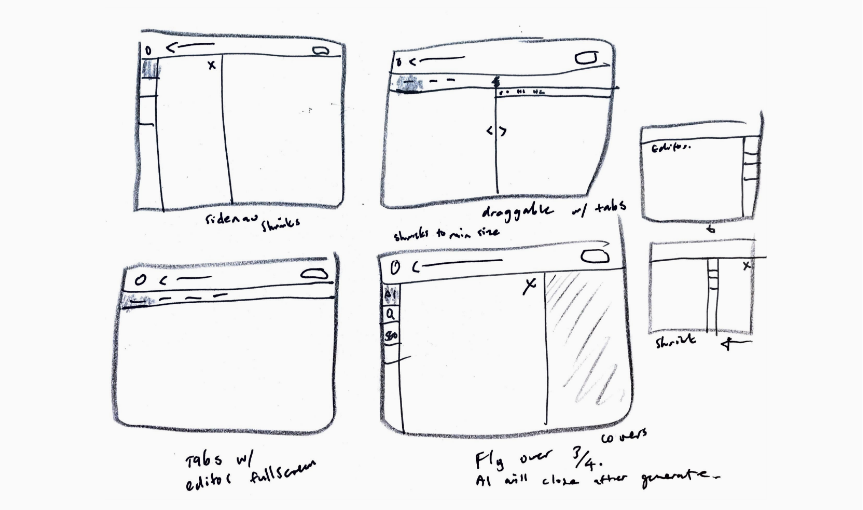 X
sidenav
shrinks
H1 H2
< >
draggable w/ tabs
shrinks to min size
Editor.
X
shrink
Tabs w/
editor fullscreen
AI
Q
SEO
X
covers
Fly over 3/4.
AI will close after generate.